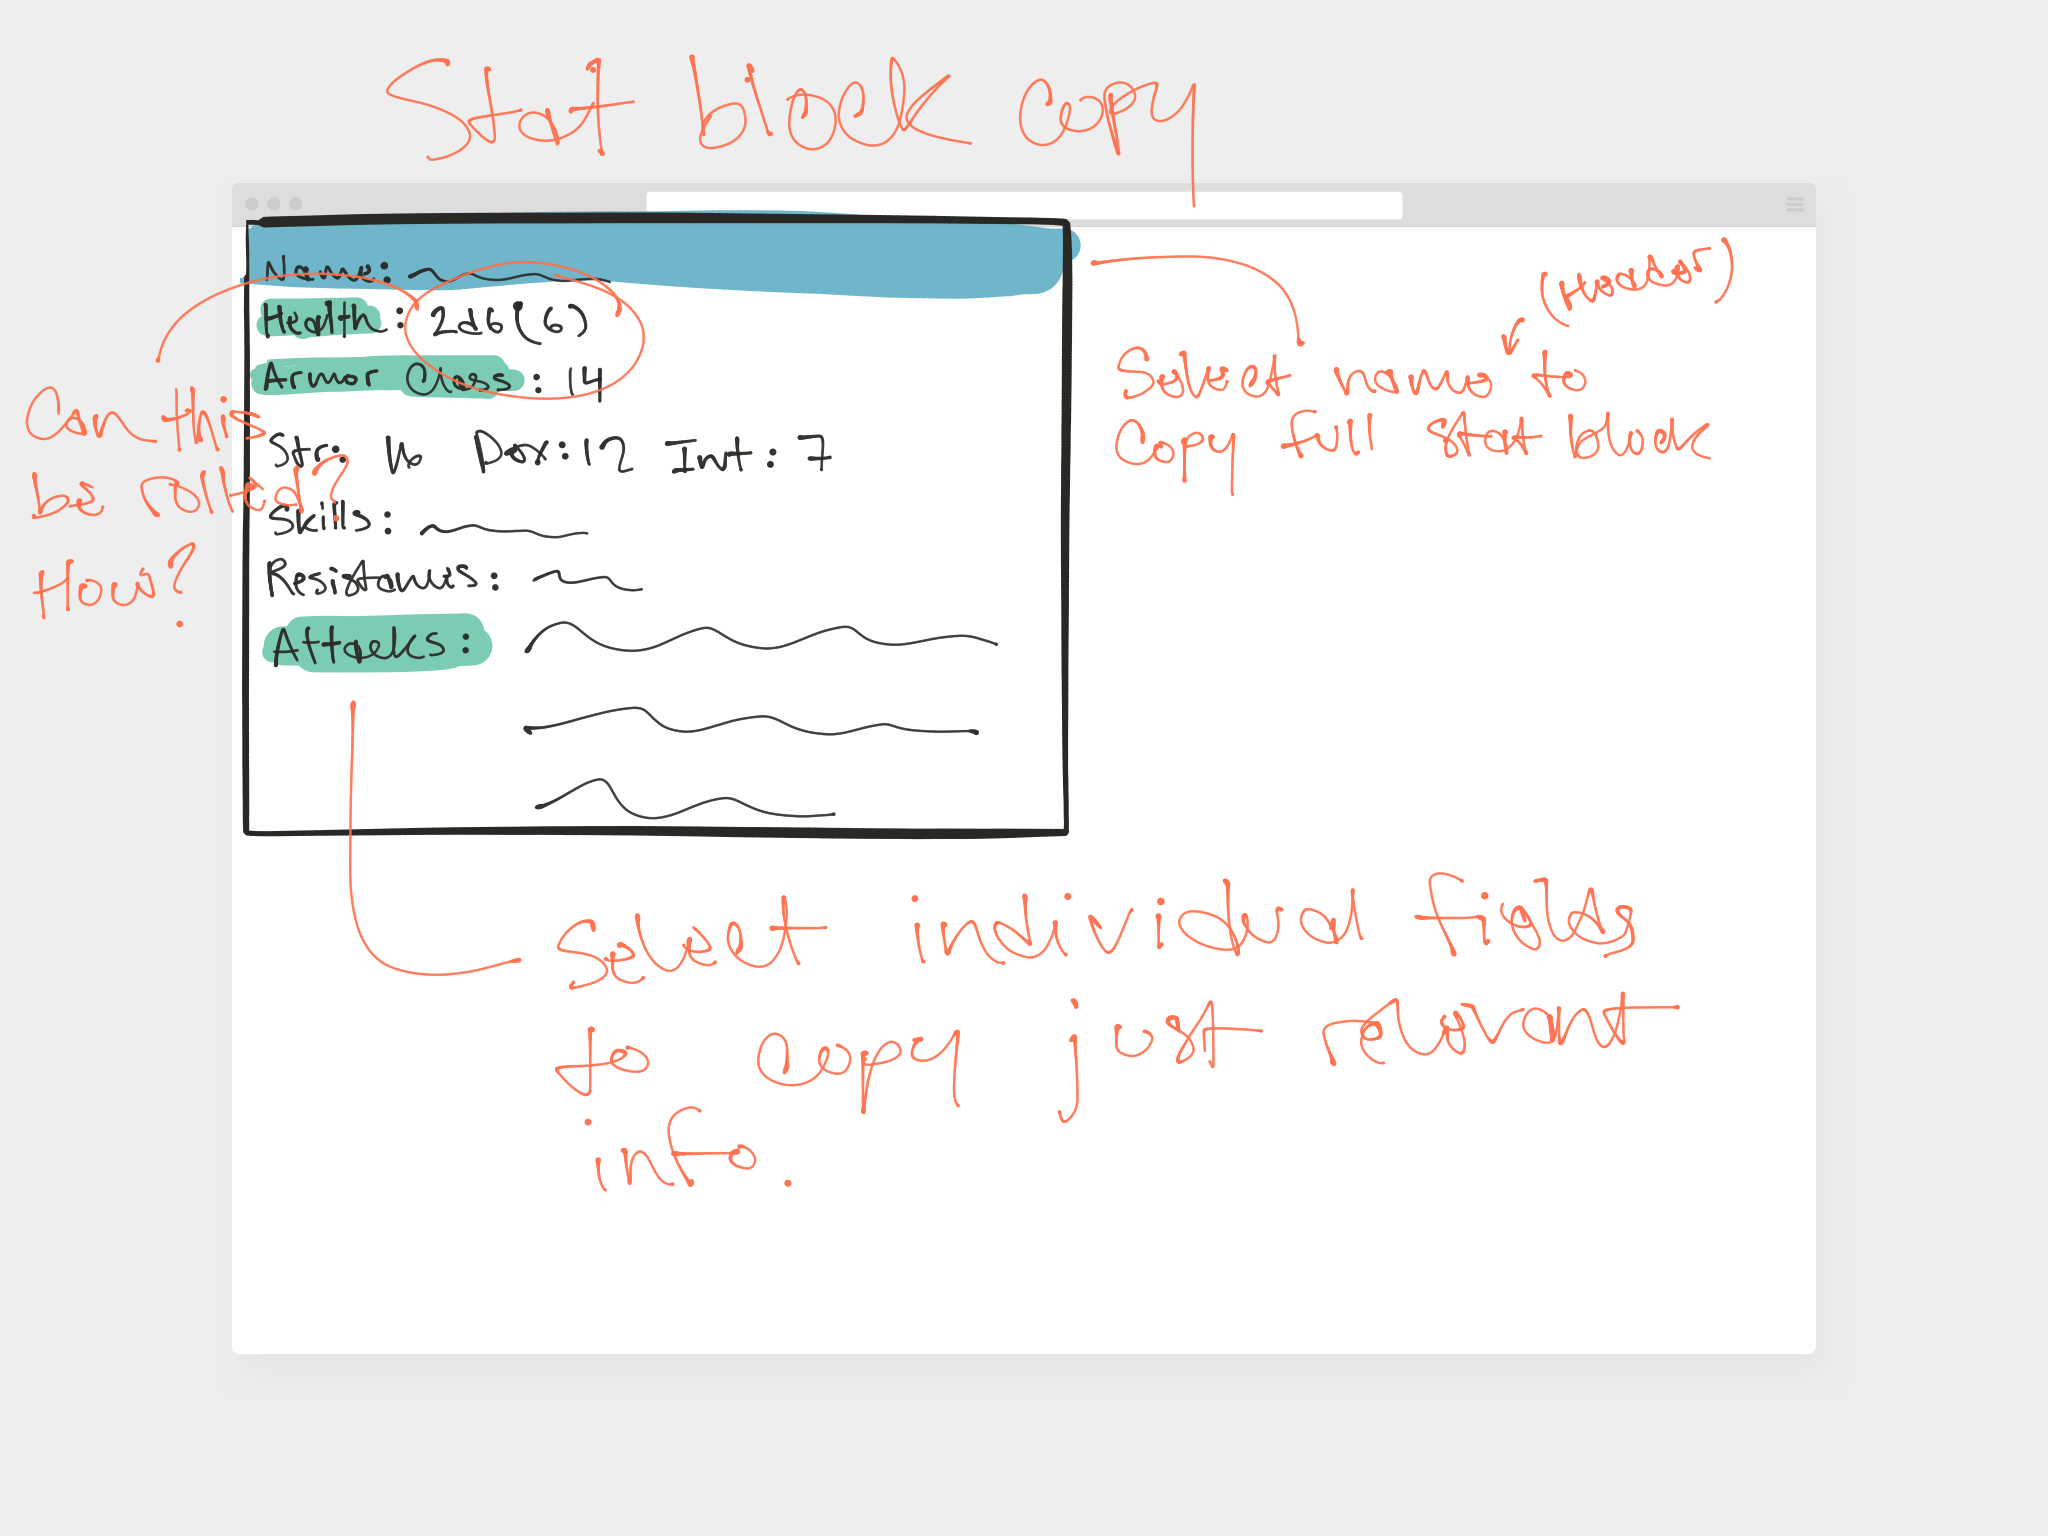 Stat block copy
Name:
Health: 2d6(6)
Armor Class: 14
Str: 16 Dex: 12 Int: 7
Skills:
Resistances:
Attacks:
Can this
be rolled?
How?
(Header)
Select name to
Copy full stat block
Select individual fields
to copy just relevant
info.